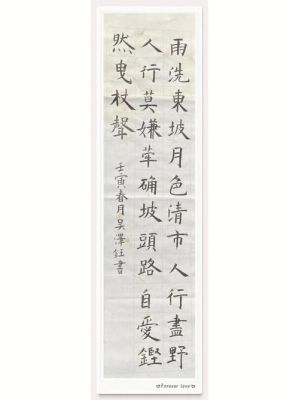 雨洗東坡月色清市人行盡野
人行莫嫌犖确坡頭路自愛鏗
然曳杖聲
壬寅春月吴澤鈺書
Forever love